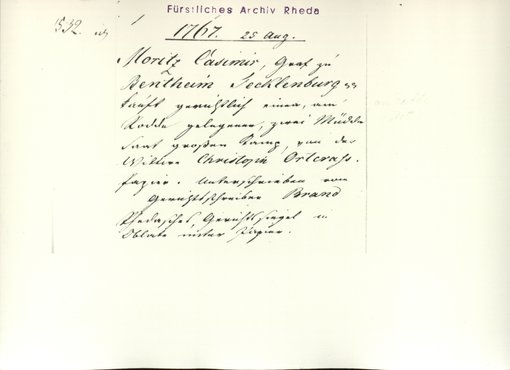 Fürstliches Archiv Rheda
1532.
1767. 25 Aug.
Moritz Casimir, Graf zu
Bentheim Tecklenburg
kauft gerichtlich einen, am
Rodde gelegenen, zwei Müdde
Saat großen Kamp, von der
Wittwe Christoph
Papier. Unterschrieben vom
Gerichtsschreiber Brand
Rhedasches Gerichtssiegel in
Oblate unter Papier.